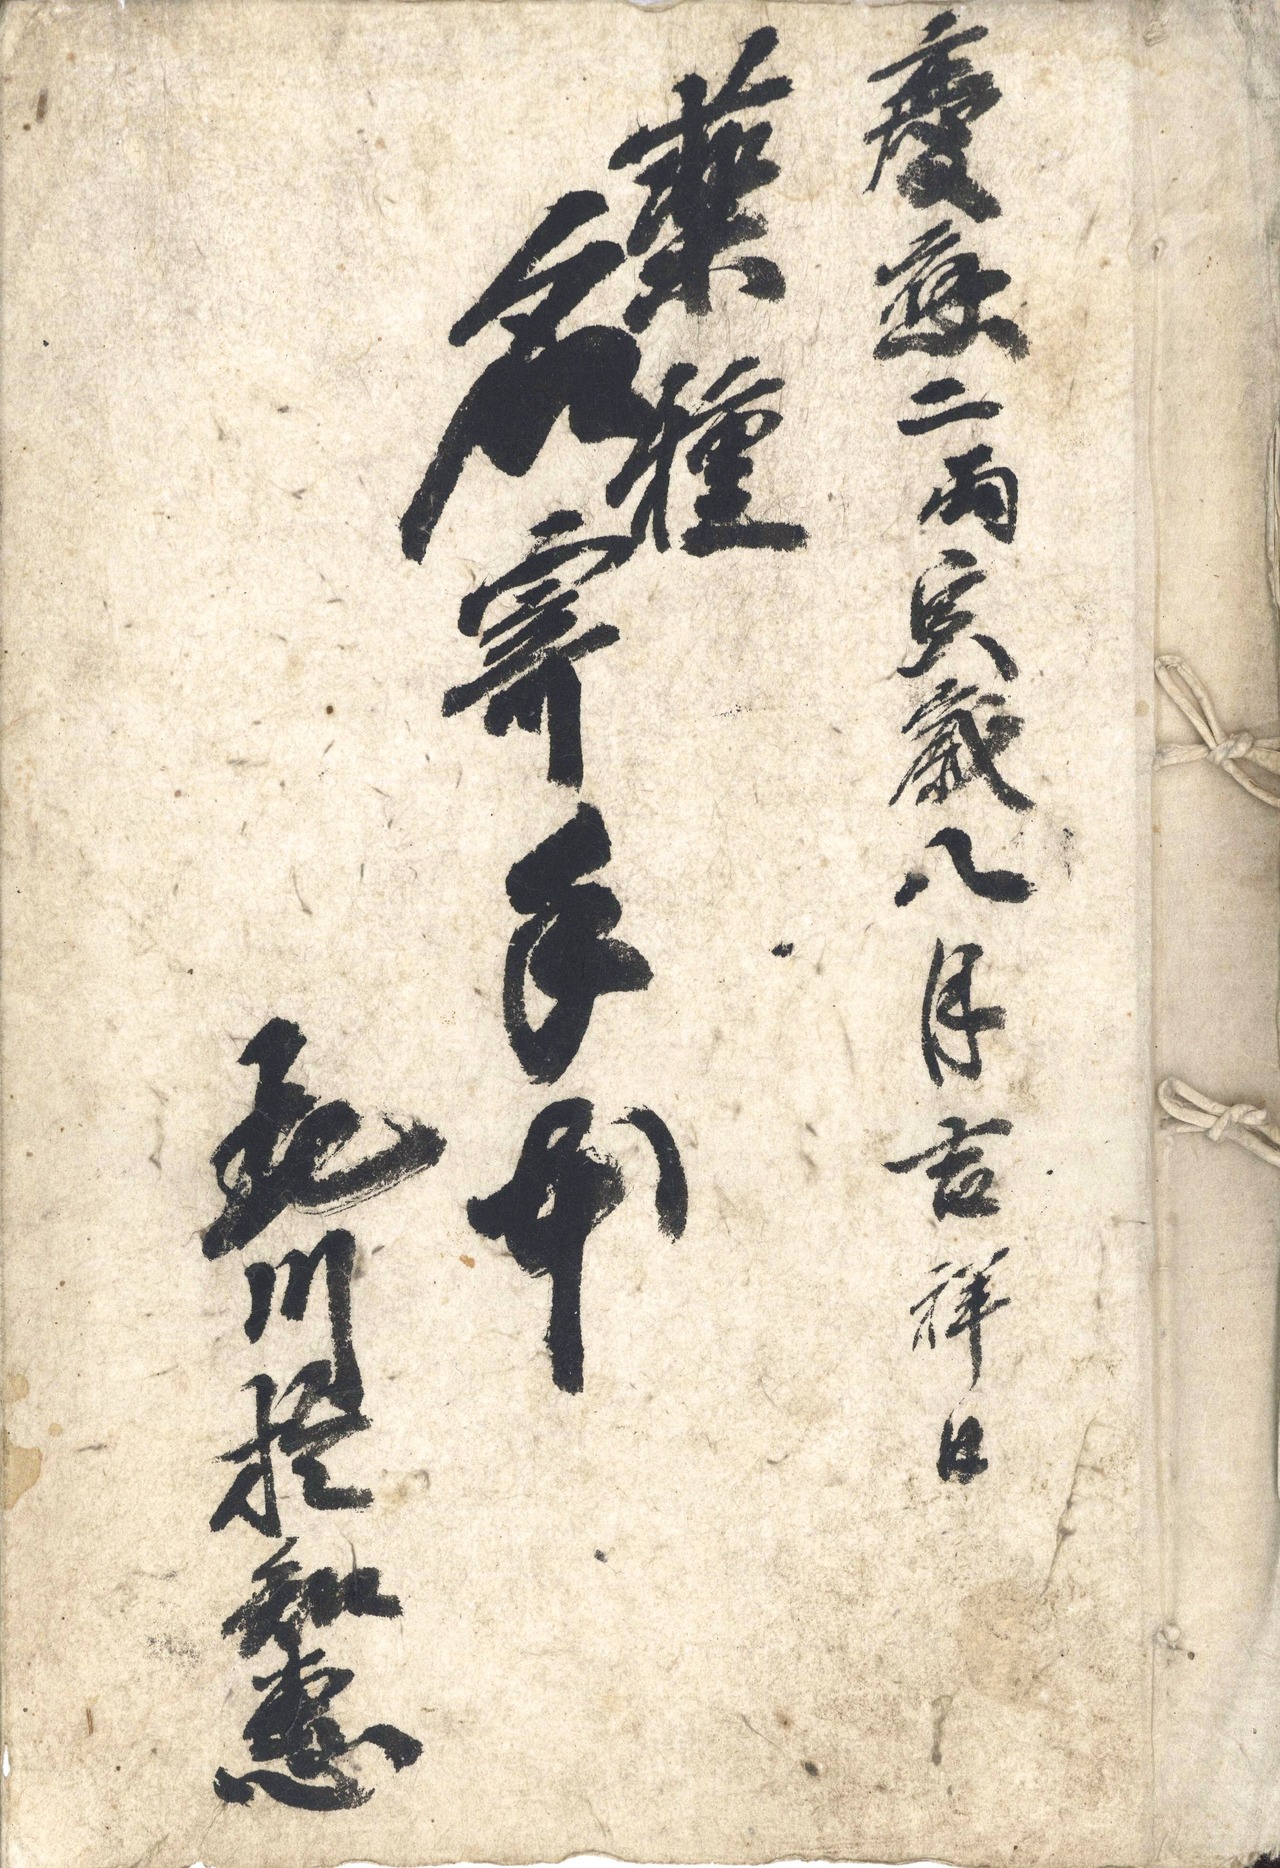 慶應二丙寅歳八月吉祥日
薬種
名寄手本
川知惠